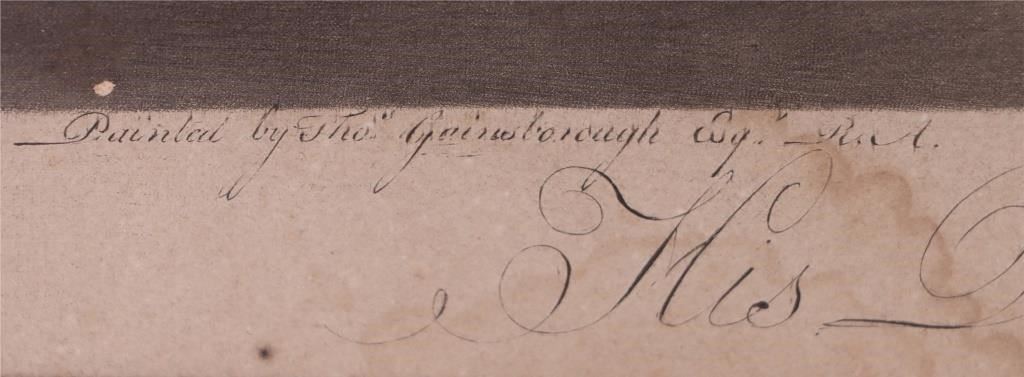 Painted by Thos. Gainsborough Esqr. R.A.
His